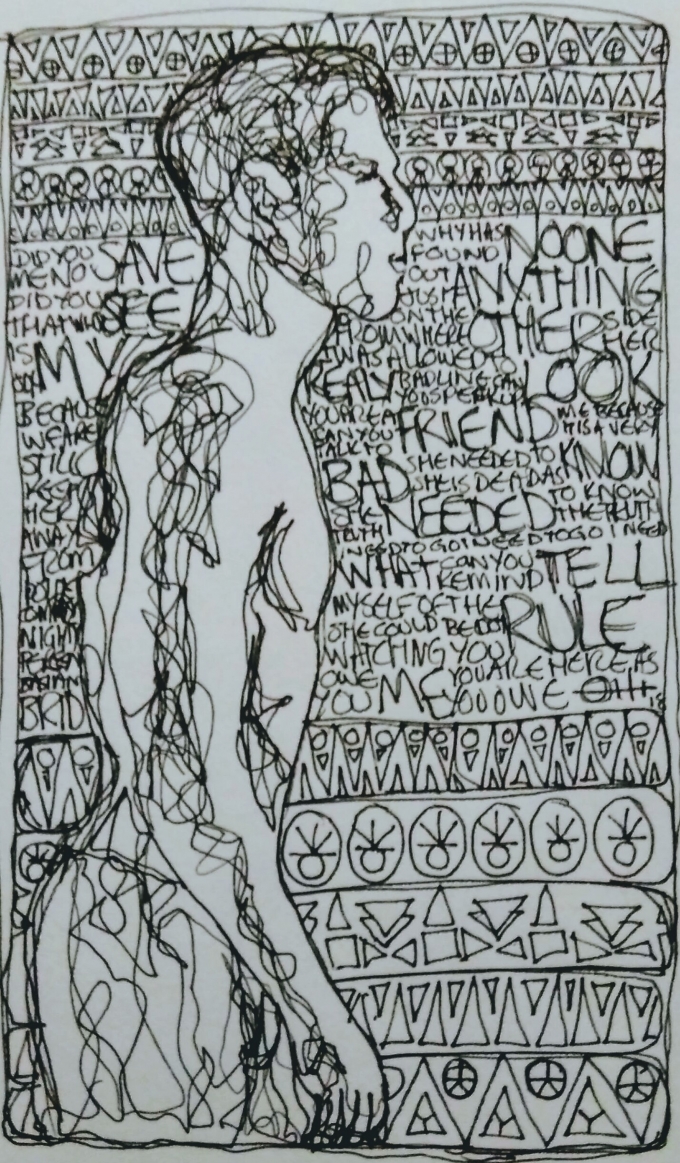 DID YOU SAVE
ME NO
DID YOU SEE
THAT WHO
IS MY
BECAUSE
WE ARE
STILL
KEEP
HER
AWAY
FROM
NIGHT
BRID
WHY HAS NO ONE
FOUND
OUT ANYTHING
JUST
ON THE OTHER SIDE
FROM WHERE HER
I WAS ALLOWED TO LOOK
REALY BAD LINE CAN
YOU SPEAK UP
YOU ARE A FRIEND ME BECAUSE
CAN YOU IT IS A VERY
TALK TO
BAD SHE NEEDED TO KNOW
SHE IS DEAD AS
SHE NEEDED TO KNOW
TRUTH THE TRUTH
I NEED TO GO I NEED TO GO I NEED
WHAT CAN YOU TELL
REMIND
MYSELF OF THE RULE
SHE COULD BE
WATCHING YOU
OWE ME YOU ARE HERE AS
YOU YOU OWE OH
18